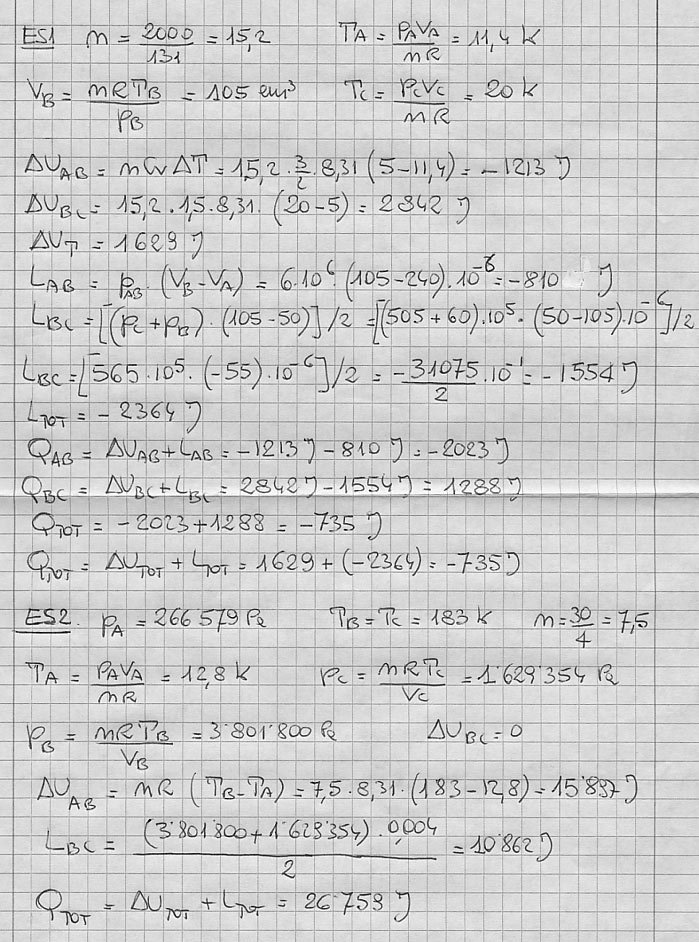 ES1 n = 2000/131 = 15,2 TA = PAVA/nR = 11,4 K
VB = nRTB/PB = 105 cm³ TC = PCVC/nR = 20 K
ΔUAB = nCvΔT = 15,2 · 3/2 · 8,31 (5-11,4) = -1213 J
ΔUBC = 15,2 · 1,5 · 8,31 · (20-5) = 2842 J
ΔUT = 1629 J
LAB = PAB · (VB-VA) = 6·10⁶ · (105-240)·10⁻⁶ = -810 J
LBC = [-(PC+PB) · (105-50)]/2 = [(505+60)·10⁵ · (50-105)·10⁻⁶]/2
LBC = [565·10⁵ · (-55)·10⁻⁶]/2 = -31075·10⁻¹/2 = -1554 J
LTOT = -2364 J
QAB = ΔUAB + LAB = -1213 J - 810 J = -2023 J
QBC = ΔUBC + LBC = 2842 J - 1554 J = 1288 J
QTOT = -2023 + 1288 = -735 J
QTOT = ΔUTOT + LTOT = 1629 + (-2364) = -735 J
ES2. PA = 266579 Pa TB = TC = 183 K n = 30/4 = 7,5
TA = PAVA/nR = 12,8 K PC = nRTC/VC = 1'629'354 Pa
PB = nRTB/VB = 3'801'800 Pa ΔUBC = 0
ΔUAB = nR (TB-TA) = 7,5 · 8,31 · (183-12,8) = 15'897 J
LBC = (3'801'800 + 1'629'354) · 0,004/2 = 10'862 J
QTOT = ΔUTOT + LTOT = 26'759 J